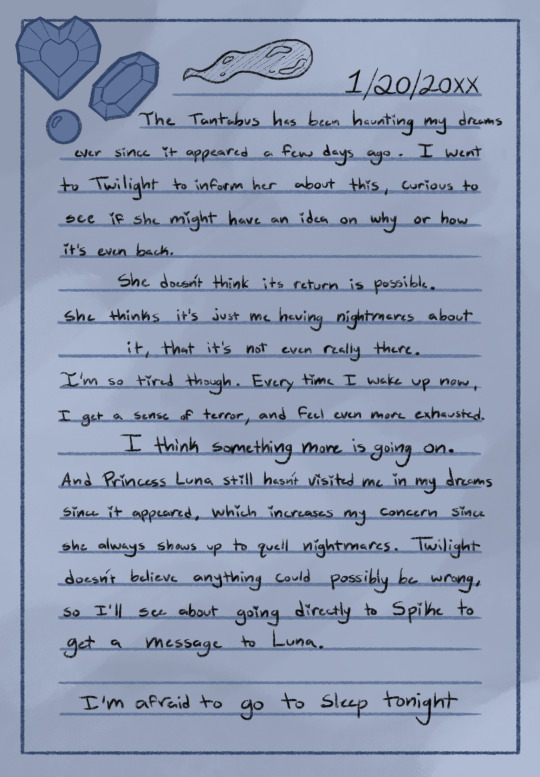 1/20/20xx
The Tantabus has been haunting my dreams
ever since it appeared a few days ago. I went
to Twilight to inform her about this, curious to
see if she might have an idea on why or how
it's even back.
She doesn't think its return is possible.
She thinks it's just me having nightmares about
it, that it's not even really there.
I'm so tired though. Every time I wake up now,
I get a sense of terror, and feel even more exhausted.
I think something more is going on.
And Princess Luna still hasn't visited me in my dreams
since it appeared, which increases my concern since
she always shows up to quell nightmares. Twilight
doesn't believe anything could possibly be wrong,
so I'll see about going directly to Spike to
get a message to Luna.
I'm afraid to go to sleep tonight